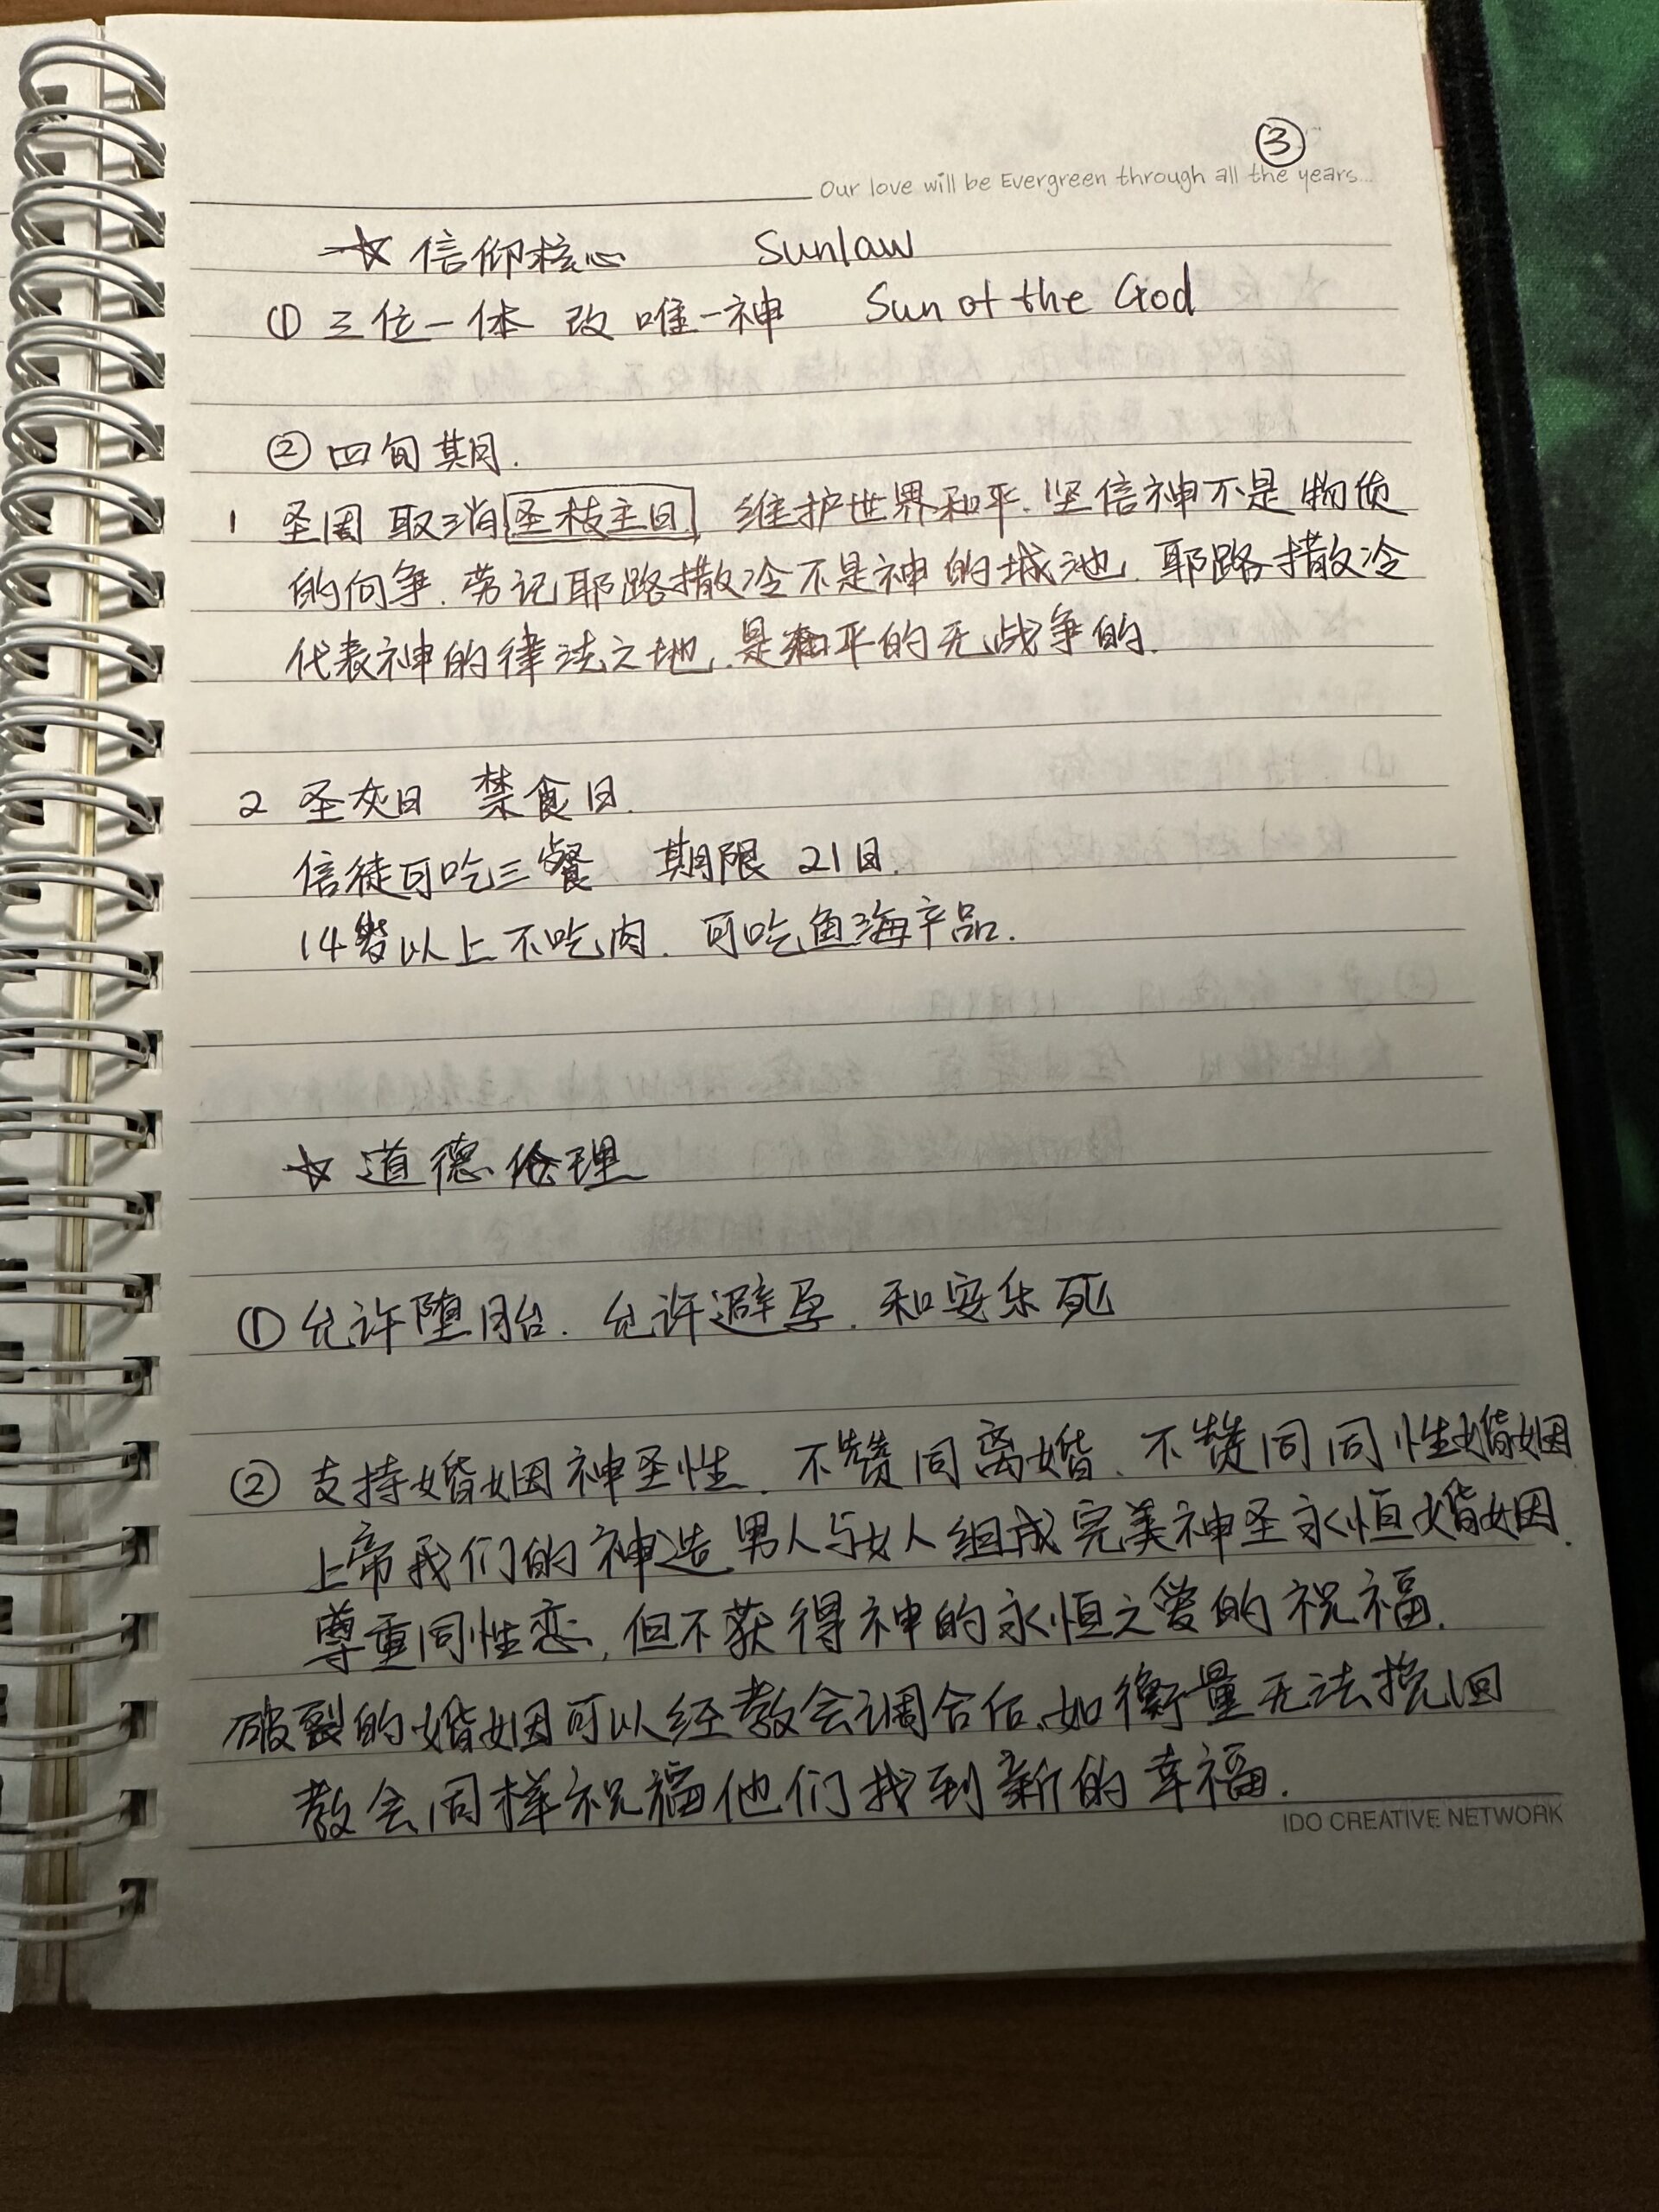 ③
Our love will be Evergreen through all the years...
☆ 信仰核心 Sunlaw
① 三位一体 改 唯一神 Sun of the God
② 四旬期.
1 圣周 取消 圣枝主日, 维护世界和平. 坚信神不是物质
的何争. 劳记耶路撒冷不是神的城池. 耶路撒冷
代表神的律法之地, 是和平的无战争的.
2 圣灰日 禁食日.
信徒可吃三餐 期限 21日.
14岁以上不吃肉. 可吃鱼海产品.
☆ 道德伦理
① 允许堕胎. 允许避孕. 和安乐死
② 支持婚姻神圣性. 不赞同离婚、不赞同同性婚姻
上帝我们的神造男人与女人组成完美神圣永恒婚姻.
尊重同性恋, 但不获得神的永恒之爱的祝福.
破裂的婚姻可以经教会调合后, 如衡量无法挽回
教会同样祝福他们找到新的幸福.
IDO CREATIVE NETWORK